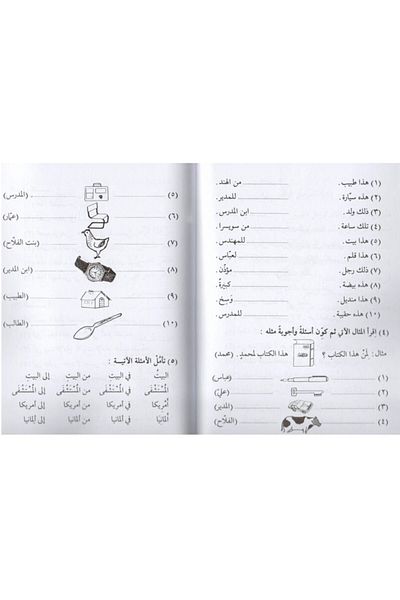 (١) هذا طبيب. ............ من الهند.
(٢) هذه سيَّارة. ............ للمدير.
(٣) ذلك ولد. ............ ابن المدرس.
(٤) تلك ساعة. ............ من سويسرا.
(٥) هذا بيت. ............ للمهندس.
(٦) هذا قلم. ............ لعباس.
(٧) ذلك رجل. ............ مؤذِّن.
(٨) هذه بيضة. ............ كبيرةٌ.
(٩) هذا منديل. ............ وَسِخٌ.
(١٠) هذه حقيبة. ............ للمدرس.
(٤) اقرأ المثال الآتي ثم كوّن أسئلةً وأجوبةً مثله :
مثال : لِمَنْ هذا الكتاب ؟ هذا الكتاب لمحمدٍ. (محمد)
(١) ............ (عباس)
(٢) ............ (عليّ)
(٣) ............ (المدير)
(٤) ............ (الفلَّاح)
(٥) ............ (المدرس)
(٦) ............ (عمّار)
(٧) ............ (بنت الفلَّاح)
(٨) ............ (ابن المدير)
(٩) ............ (الطبيب)
(١٠) ............ (الطالب)
(٥) تأمَّلْ الأمثلة الآتيــة :
البيتُ في البيتِ من البيتِ إلى البيتِ
المُسْتَشْفَى في المُسْتَشْفَى من المُسْتَشْفَى إلى المُسْتَشْفَى
أمْرِيكا في أمريكا من أمريكا إلى أمريكا
ألمانيَا في ألمانيا من ألمانيا إلى ألمانيا